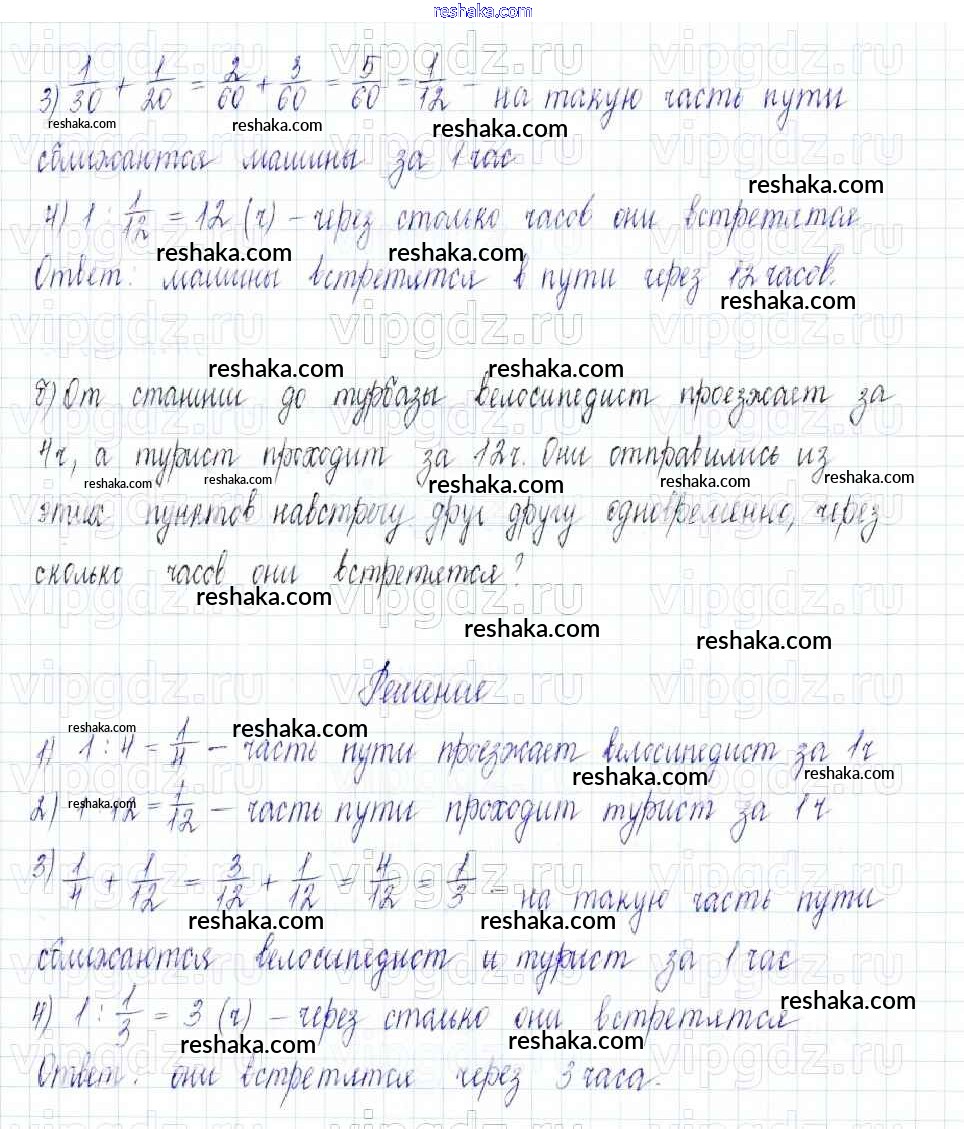 reshaka.com
3) 1/30 + 1/20 = 2/60 + 3/60 = 5/60 = 1/12 - на такую часть пути
сближаются машины за 1 час
4) 1 : 1/12 = 12 (ч) - через столько часов они встретятся
Ответ: машины встретятся в пути через 12 часов.
б) От станции до турбазы велосипедист проезжает за
4ч, а турист проходит за 12ч. Они отправились из
этих пунктов навстречу друг другу одновременно, через
сколько часов они встретятся?
Решение
1) 1 : 4 = 1/4 - часть пути проезжает велосипедист за 1ч
2) 1 : 12 = 1/12 - часть пути проходит турист за 1ч
3) 1/4 + 1/12 = 3/12 + 1/12 = 4/12 = 1/3 - на такую часть пути
сближаются велосипедист и турист за 1 час
4) 1 : 1/3 = 3 (ч) - через столько они встретятся
Ответ: они встретятся через 3 часа.